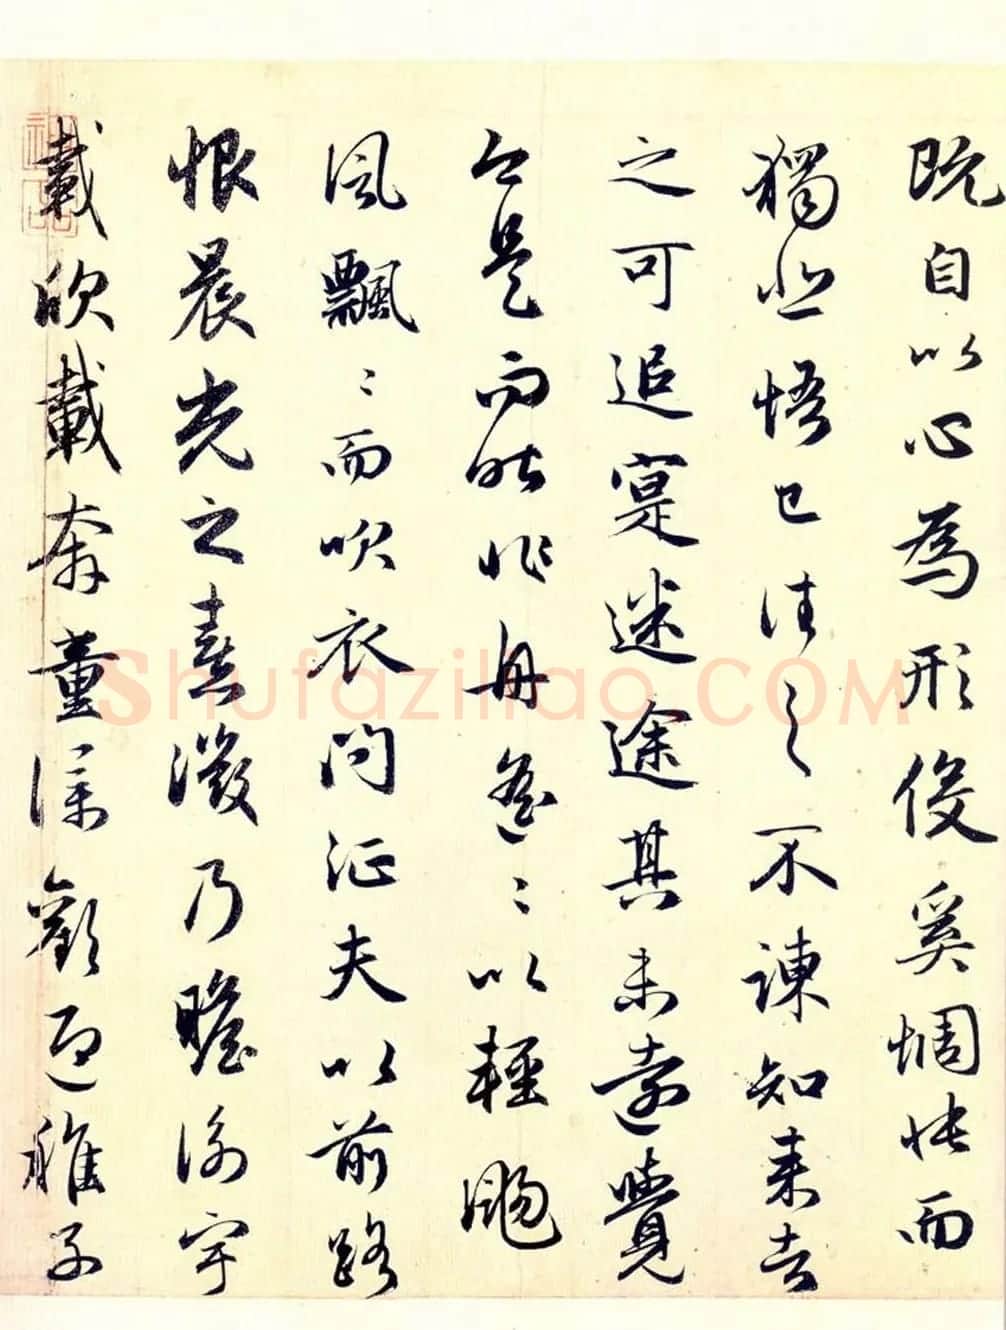 既自以心為形役奚惆悵而
獨悲悟已往之不諫知来者
之可追寔迷途其未遠覺
今是而昨非舟遙〻以輕颺
風飄〻而吹衣問征夫以前路
恨晨光之熹微乃瞻衡宇
載欣載奔童僕歡迎稚子
Shufaziliao.COM